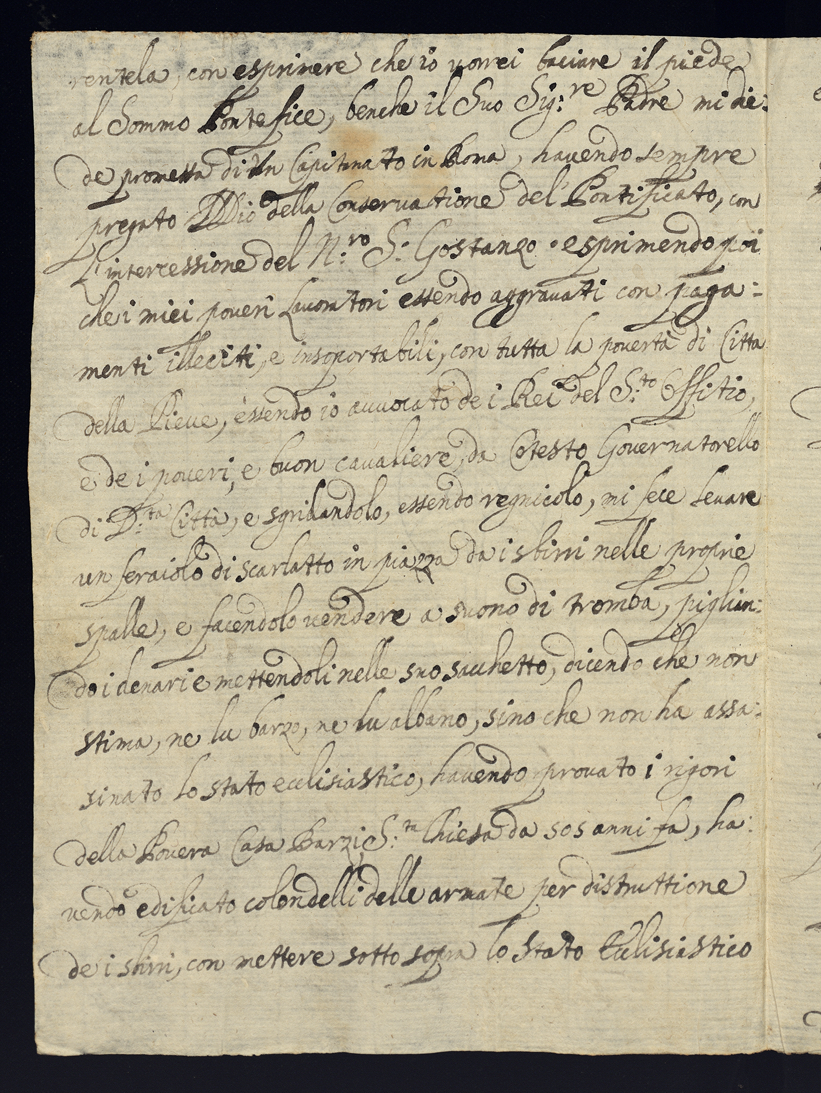 rentela, con esprimere che io vorrei baciare il piede
al Sommo Pontefice, benche il Suo Sig:re Padre mi die:
de promessa di un Capitanato in Roma, havendo sempre
pregato Iddio della Conservatione del' Pontificato, con
l'intercessione del N:ro S: Gostanzo. esprimendo poi
che i miei poveri Lavoratori essendo aggravati con paga:
menti illeciti, e insoportabili, con tutta la povertà di Citta
della Pieve, essendo io avvocato de i Rei del S:to Offitio,
e de i poveri, e buon cavaliere, da Cotesto Governatorello
di D:ta Città, e sgridandolo, essendo regnicolo, mi fece levare
un feraiolo di scarlatto in piazza da i sbirri nelle proprie
spalle, e facendolo vendere a suono di tromba, piglian:
do i denari e mettendoli nelle suo sacchetto, dicendo che non
stima, ne lu barzo, ne lu albano, sino che non ha assa:
sinato lo stato ecclisiastico, havendo provato i rigori
della Povera Casa Barzi S:ta Chiesa da 505 anni fa, ha:
vendo edificato colondelli delle armate per distruttione
de i sbirri, con mettere sotto sopra lo stato Ecclisiastico